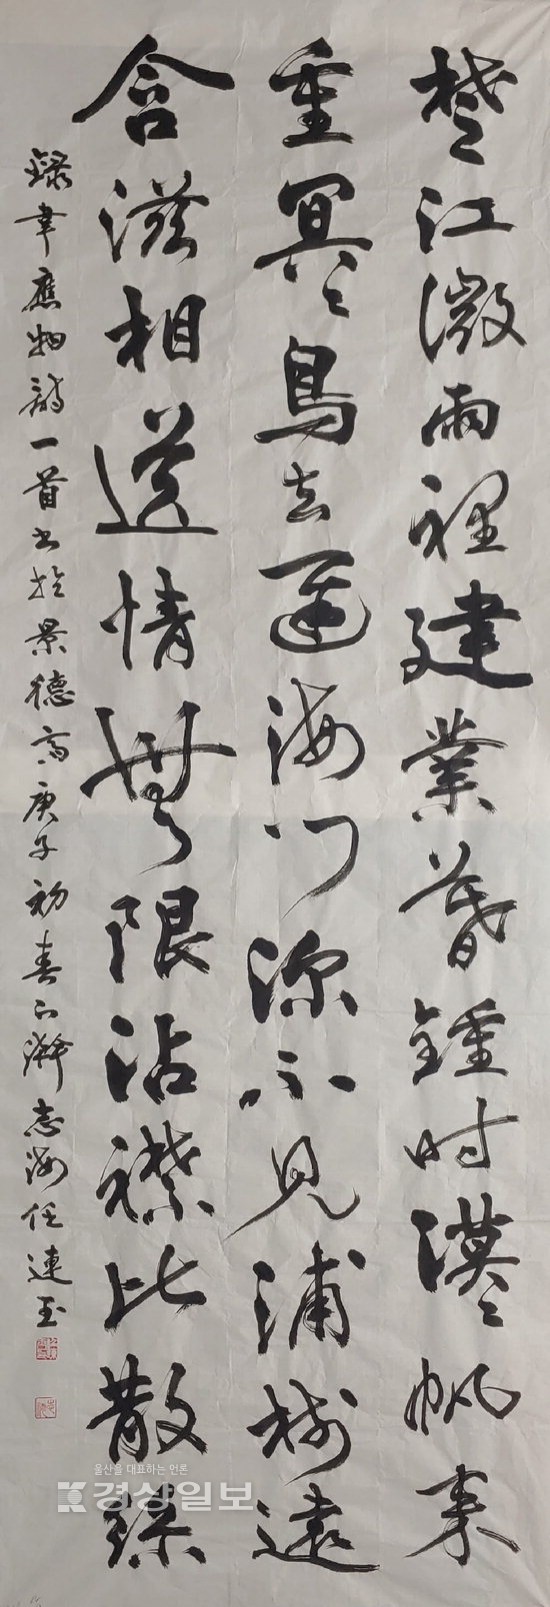 楚江微雨裡建業暮鍾時漠〻帆來
重冥〻鳥去遲海门深不見浦樹遠
含滋相送情無限沾襟比散絲
錄韋應物詩一首書於景德庚子初春下澣志海任連玉
울산을 대표하는 언론
경상일보